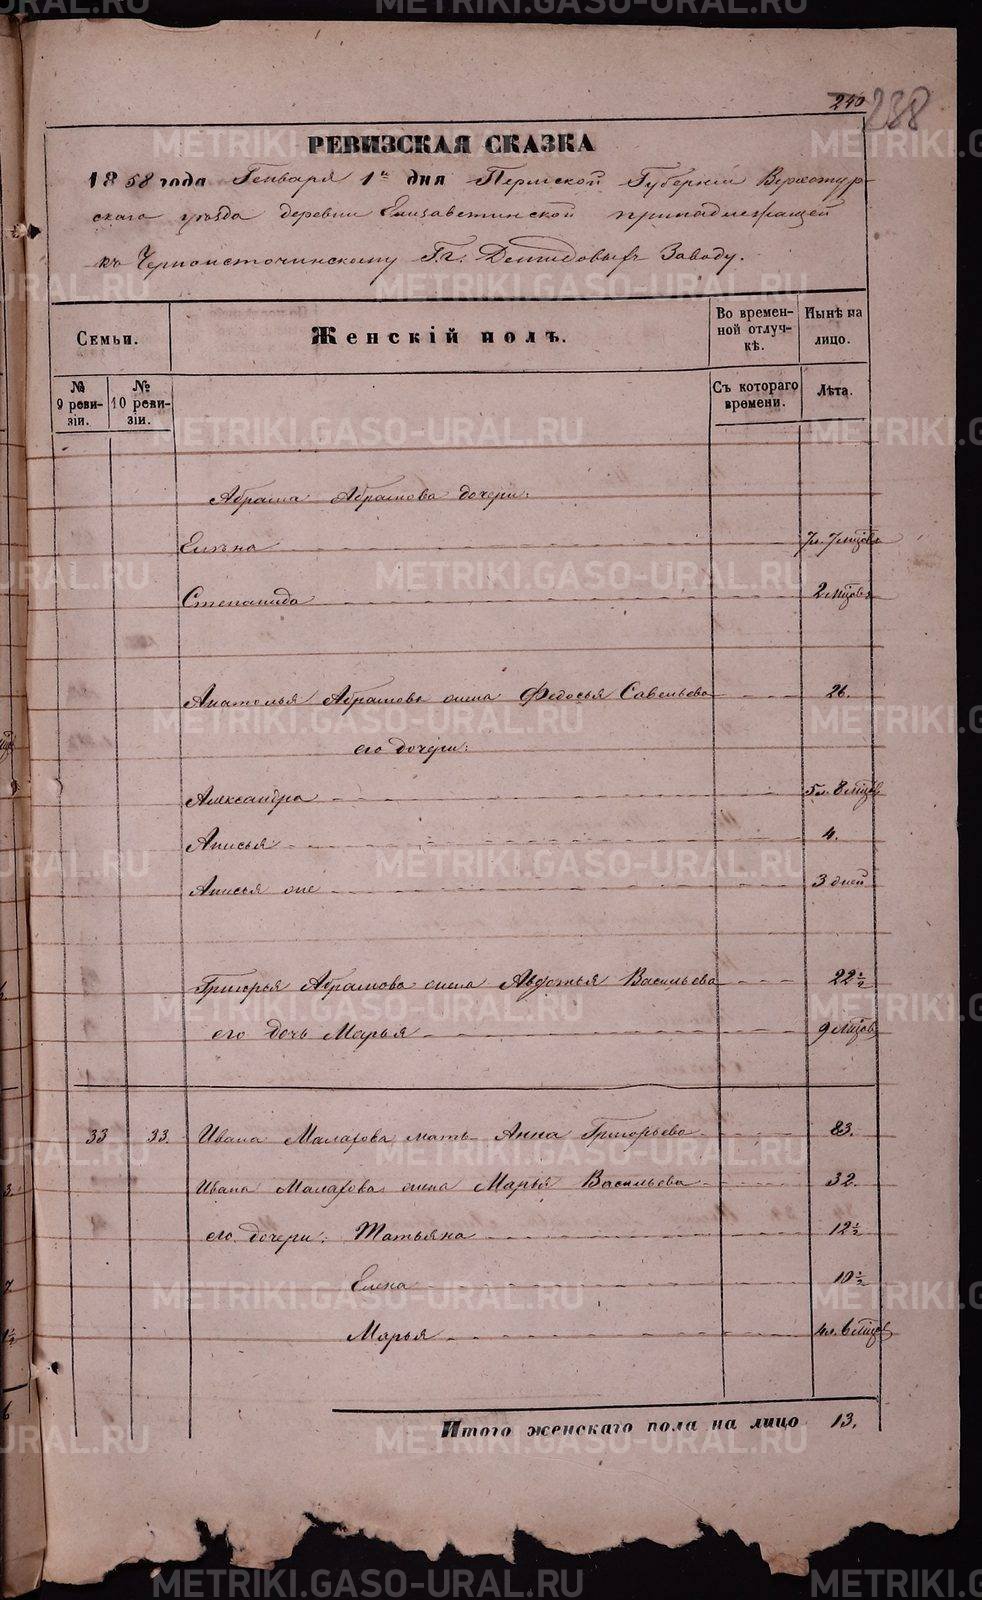 240 238
РЕВИЗСКАЯ СКАЗКА
1858 года Генваря 1го дня Пермской Губерніи Верхотур-
скаго уѣзда деревни Елизаветинской принадлежащей
къ Черноисточинскому Г.г. Демидовыхъ Заводу.
Семьи.
Женскій полъ.
Во времен-
ной отлуч-
кѣ.
Нынѣ на
лицо.
№ 9 реви-
зіи.
№ 10 реви-
зіи.
Съ котораго
времени.
Лѣта.
Абрама Абрамова дочери:
Елена 7л. 7мѣцовъ
Степанида 2 мѣцовъ
Анатолья Абрамова жена Федосья Савельева 26.
его дочери:
Александра 5л. 8 мѣцов
Анисья 4.
Анисья же 3 дней
Григорья Абрамова жена Авдотья Васильева 22 1/2
его дочь Марья 9 мѣцов
33 33. Ивана Малахова мать Анна Григорьева 83.
Ивана Малахова жена Марья Васильева 32.
его дочери: Татьяна 12 1/2
Елена 10 1/2
Марья 4л. 6 мѣцов
Итого женскаго пола на лицо 13.
METRIKI.GASO-URAL.RU